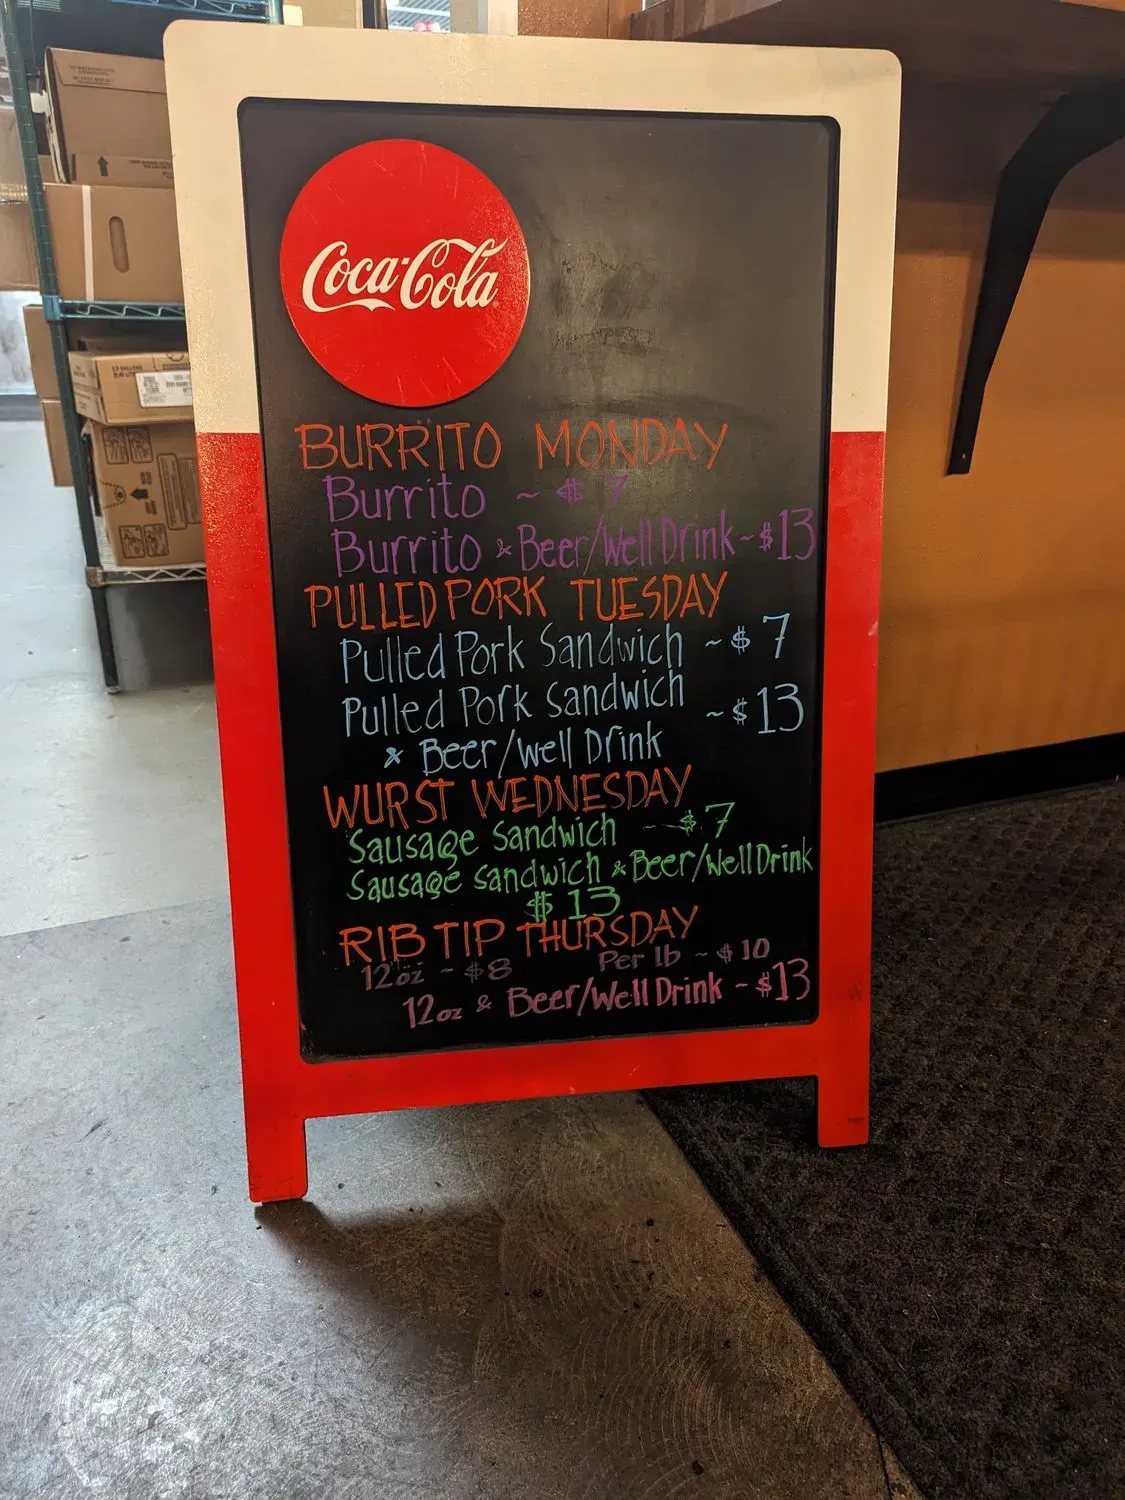 Coca-Cola
BURRITO MONDAY
Burrito ~ $ 7
Burrito & Beer/Well Drink ~ $13
PULLED PORK TUESDAY
Pulled Pork Sandwich ~ $ 7
Pulled Pork Sandwich ~ $13
& Beer/Well Drink
WURST WEDNESDAY
Sausage Sandwich ~ $ 7
Sausage Sandwich & Beer/Well Drink
$ 13
RIB TIP THURSDAY
12oz ~ $8 Per lb ~ $10
12oz & Beer/Well Drink ~ $13